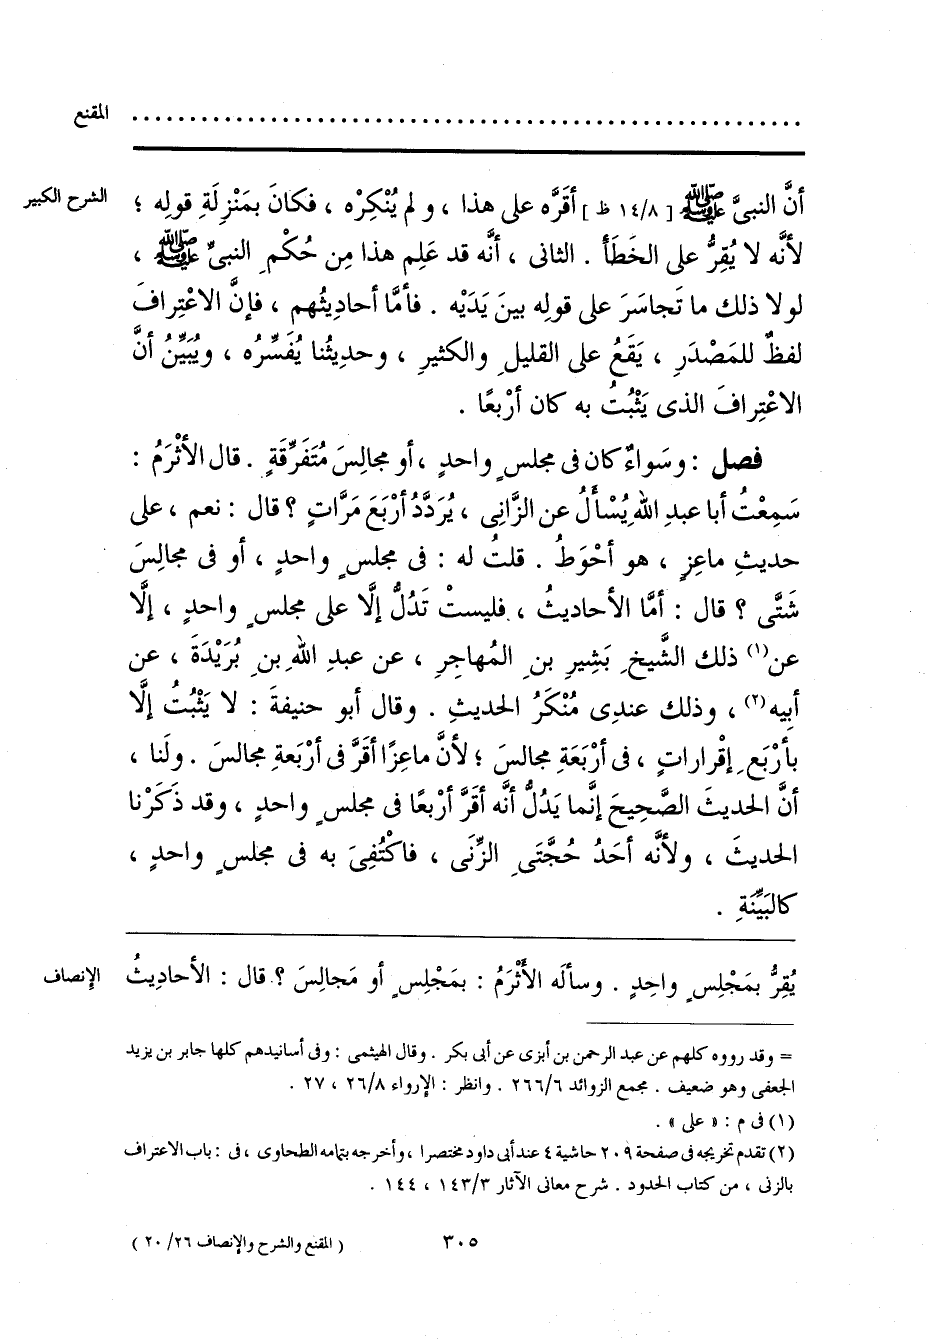 المقنع ..........................................................
الشرح الكبير أنَّ النبىَّ ﷺ [ ١٤/٨ ظ ] أقَرَّه على هذا ، ولم يُنْكِرْه ، فكانَ بمَنْزِلَةِ قولِه ؛
لأنَّه لا يُقِرُّ على الخَطَأ . الثانى ، أنَّه قد عَلِم هذا مِن حُكْمِ النبىِّ ﷺ ،
لولا ذلك ما تَجاسَرَ على قولِه بينَ يَدَيْه . فأمَّا أحاديثُهم ، فإنَّ الاعْتِرافَ
لفظٌ للمَصْدَرِ ، يَقَعُ على القليلِ والكثيرِ ، وحديثُنا يُفَسِّرُه ، ويُبَيِّنُ أنَّ
الاعْتِرافَ الذى يَثْبُتُ به كان أرْبعًا .
فصل : وسَواءٌ كان فى مجلسٍ واحدٍ ، أو مجالِسَ مُتَفَرِّقَةٍ . قال الأثْرَمُ :
سَمِعْتُ أبا عبدِ اللهِ يُسْأَلُ عن الزَّانِى ، يُرَدَّدُ أرْبَعَ مَرَّاتٍ ؟ قال : نعم ، على
حديثِ ماعِزٍ ، هو أحْوَطُ . قلتُ له : فى مجلسٍ واحدٍ ، أو فى مجالِسَ
شَتَّى ؟ قال : أمَّا الأحاديثُ ، فليستْ تَدُلُّ إلَّا على مجلسٍ واحدٍ ، إلَّا
عن(١) ذلك الشَّيخِ بَشِيرِ بنِ المُهاجِرِ ، عن عبدِ اللهِ بنِ بُرَيْدَةَ ، عن
أبِيه(٢) ، وذلك عندِى مُنْكَرُ الحديثِ . وقال أبو حنيفةَ : لا يَثْبُتُ إلَّا
بأرْبَعِ إقْراراتٍ ، فى أرْبَعَةِ مجالسَ ؛ لأنَّ ماعِزًا أقَرَّ فى أرْبَعةِ مجالسَ . ولَنا ،
أنَّ الحديثَ الصَّحيحَ إنَّما يَدُلُّ أنَّه أقَرَّ أرْبعًا فى مجلسٍ واحدٍ ، وقد ذَكَرْنا
الحديثَ ، ولأنَّه أحَدُ حُجَّتَىِ الزِّنَى ، فاكْتُفِىَ به فى مجلسٍ واحدٍ ،
كالبَيِّنَةِ .
الإنصاف يُقِرُّ بمَجْلِسٍ واحِدٍ . وسألَه الأَثْرَمُ : بمَجْلِسٍ أو مَجالِسَ ؟ قال : الأحادِيثُ
= وقد رووه كلهم عن عبد الرحمن بن أبزى عن أبى بكر . وقال الهيثمى : وفى أسانيدهم كلها جابر بن يزيد
الجعفى وهو ضعيف . مجمع الزوائد ٢٦٦/٦ . وانظر : الإرواء ٢٦/٨ ، ٢٧ .
(١) فى م : « على » .
(٢) تقدم تخريجه فى صفحة ٢٠٩ حاشية ٤ عند أبى داود مختصرا ، وأخرجه بتمامه الطحاوى ، فى : باب الاعتراف
بالزنى ، من كتاب الحدود . شرح معانى الآثار ١٤٣/٣ ، ١٤٤ .
٣٠٥ ( المقنع والشرح والإنصاف ٢٠/٢٦ )